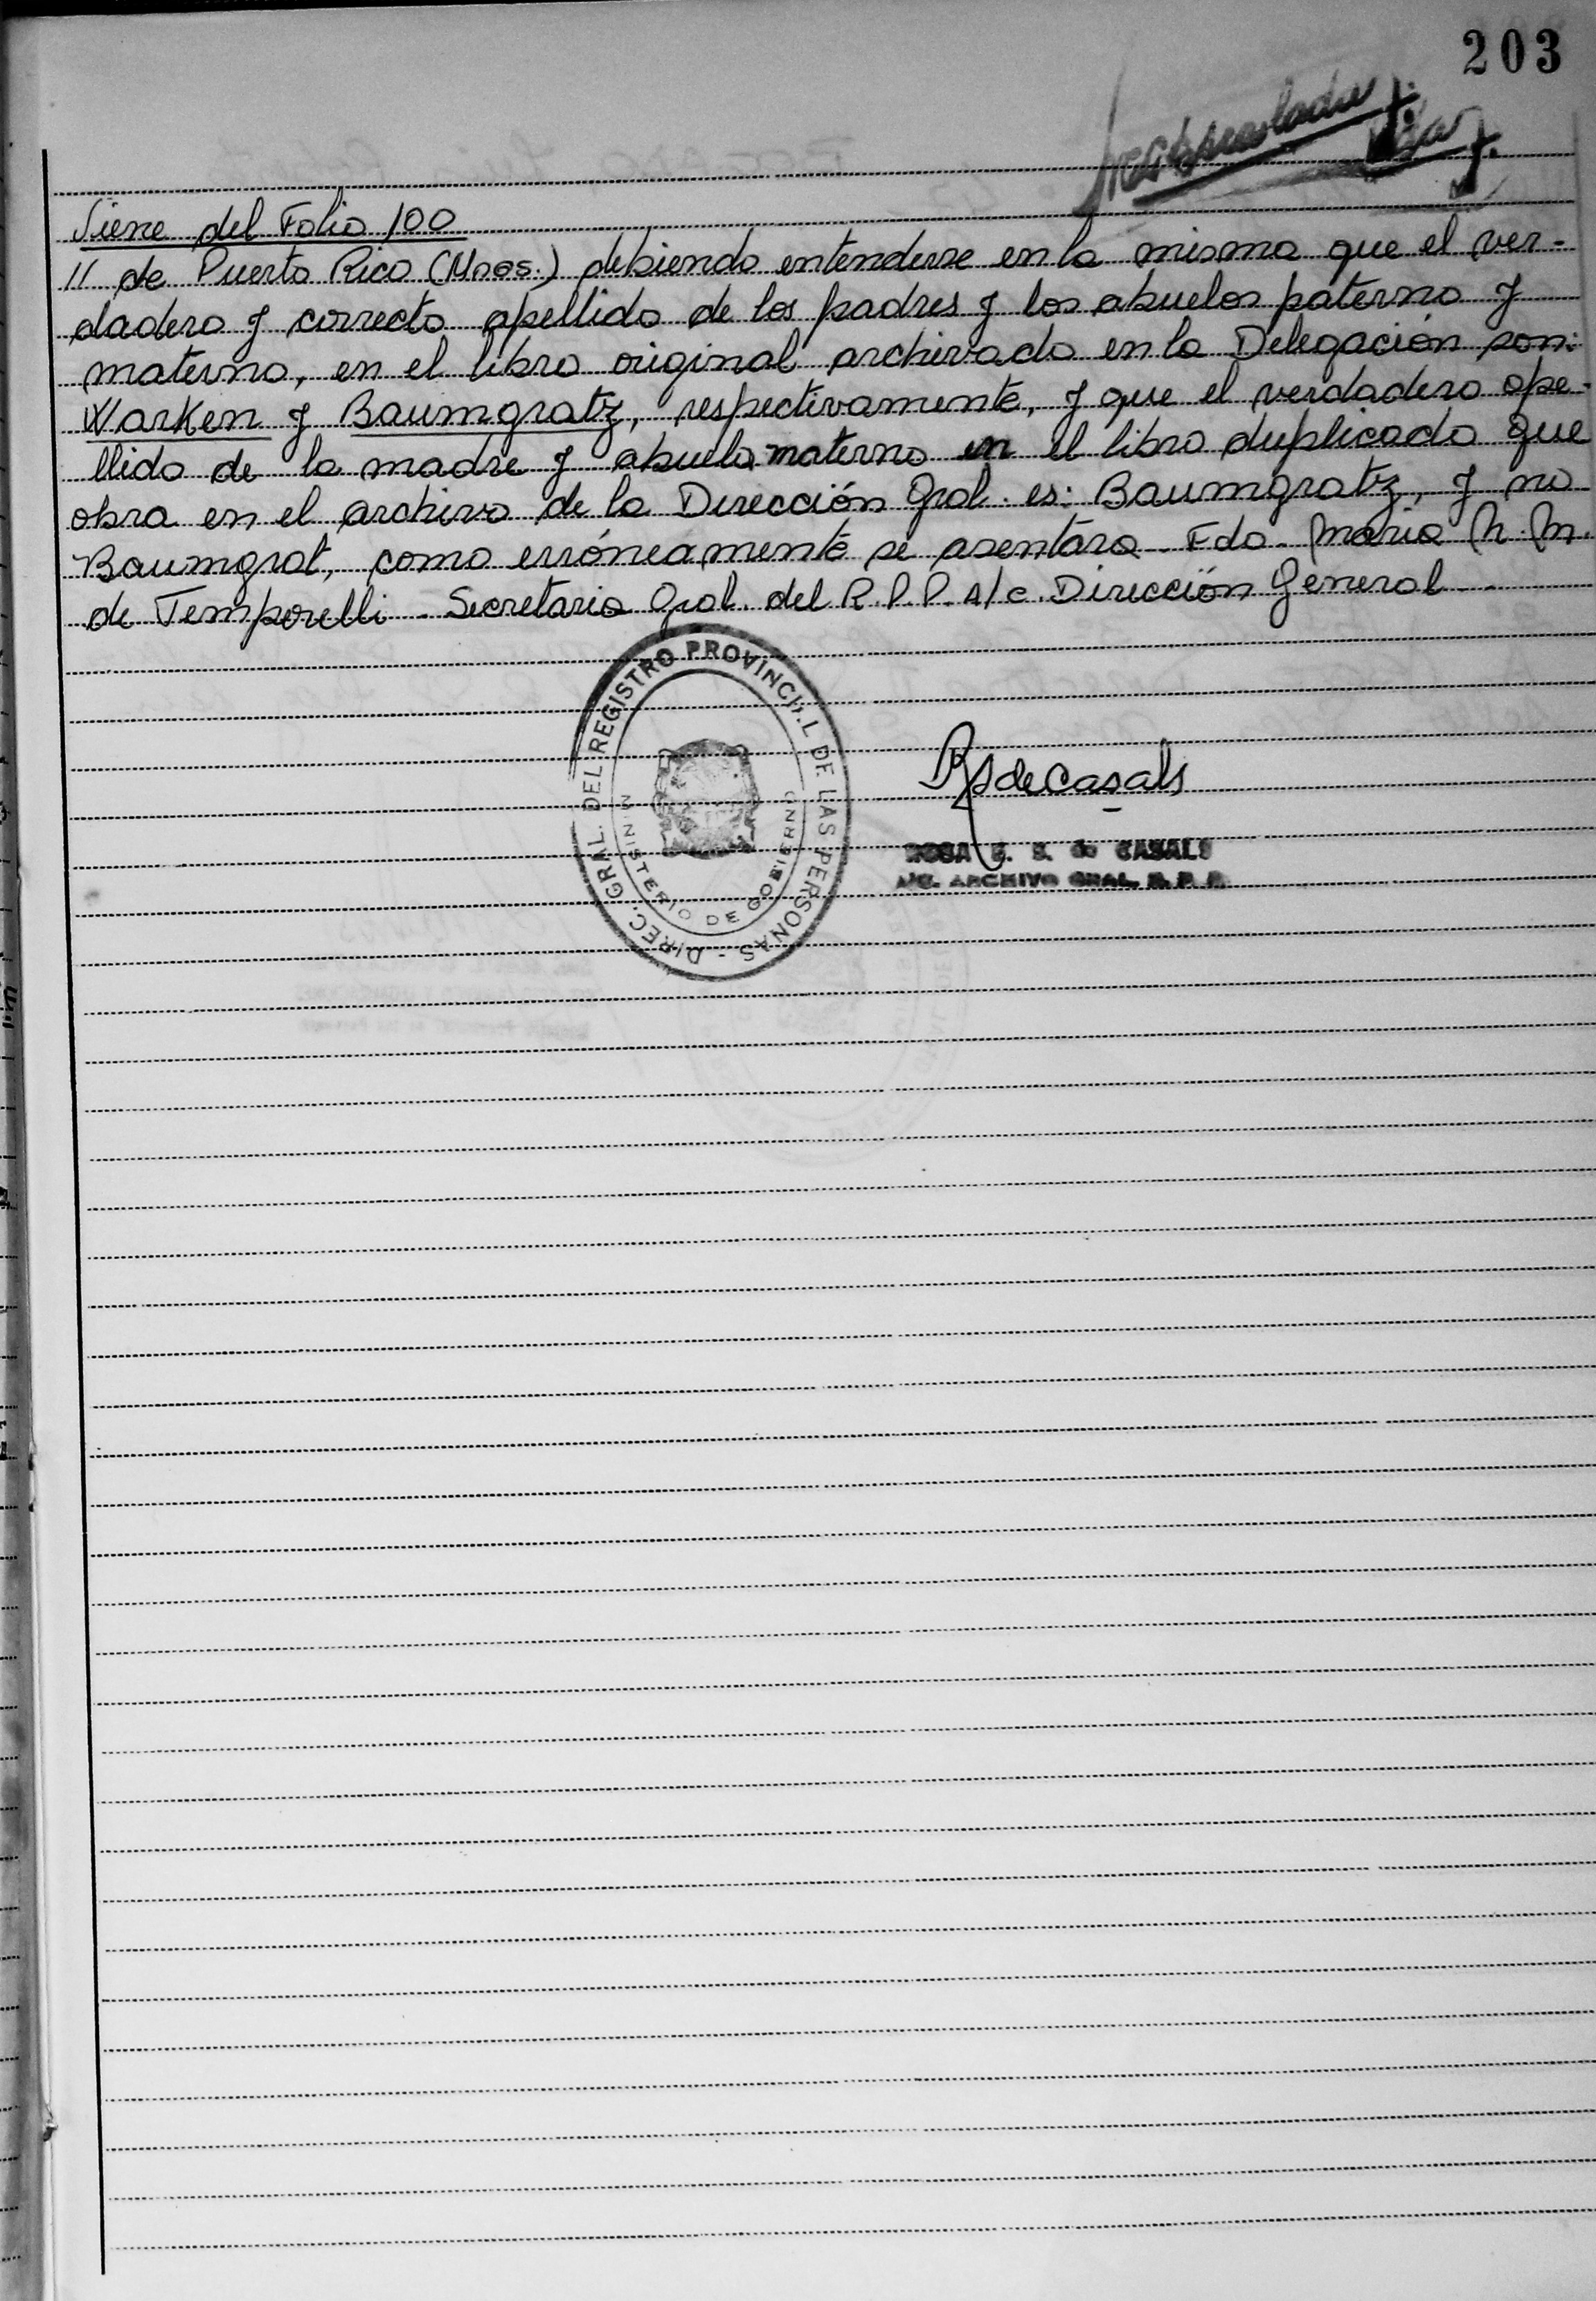 203
Viene del Folio 100
// de Puerto Rico (Mnes.) debiendo entenderse en la misma que el ver-
dadero y correcto apellido de los padres y los abuelos paterno y
materno, en el libro original archivado en la Delegación son:
Warken y Baumgratz, respectivamente, y que el verdadero ape-
llido de la madre y abuelo materno en el libro duplicado que
obra en el archivo de la Dirección Gral. es: Baumgratz, y no
Baumgrat, como erróneamente se asentara - Fdo - Maria N. M.
de Temporelli - Secretaria Gral. del R.P.P. A/c. Dirección General -
DIREC. GRAL. DEL REGISTRO PROVINCIAL DE LAS PERSONAS -
MINISTERIO DE GOBIERNO
RSdeCasals
ROSA E. S. de CASALS
ARCHIVO GRAL. R. P. P.